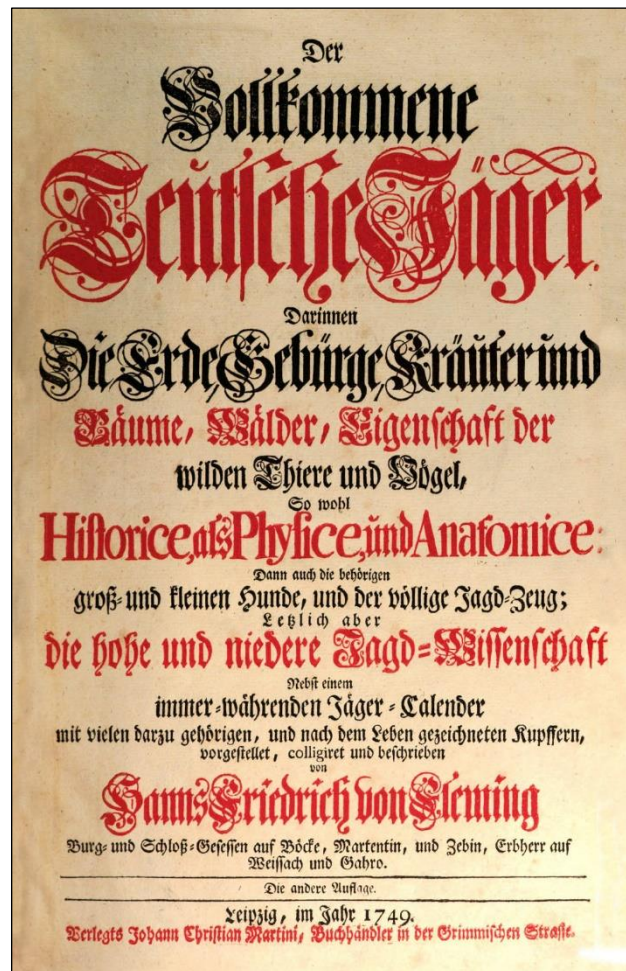 Der
Vollkommene
Teutsche Jäger.
Darinnen
Die Erde, Gebürge, Kräuter und
Bäume, Wälder, Eigenschaft der
wilden Thiere und Vögel,
So wohl
Historice, als Physice, und Anatomice:
Dann auch die behörigen
groß- und kleinen Hunde, und der völlige Jagd-Zeug;
Letzlich aber
die hohe und niedere Jagd-Wissenschaft
Nebst einem
immer-währenden Jäger-Calender
mit vielen darzu gehörigen, und nach dem Leben gezeichneten Kupffern,
vorgestellet, colligiret und beschrieben
von
Hanns Friedrich von Fleming
Burg- und Schloß-Gesessen auf Böcke, Martentin, und Zebin, Erbherr auf
Weissach und Gahro.
Die andere Auflage.
Leipzig, im Jahr 1749.
Verlegts Johann Christian Martini, Buchhändler in der Grimmischen Straße.